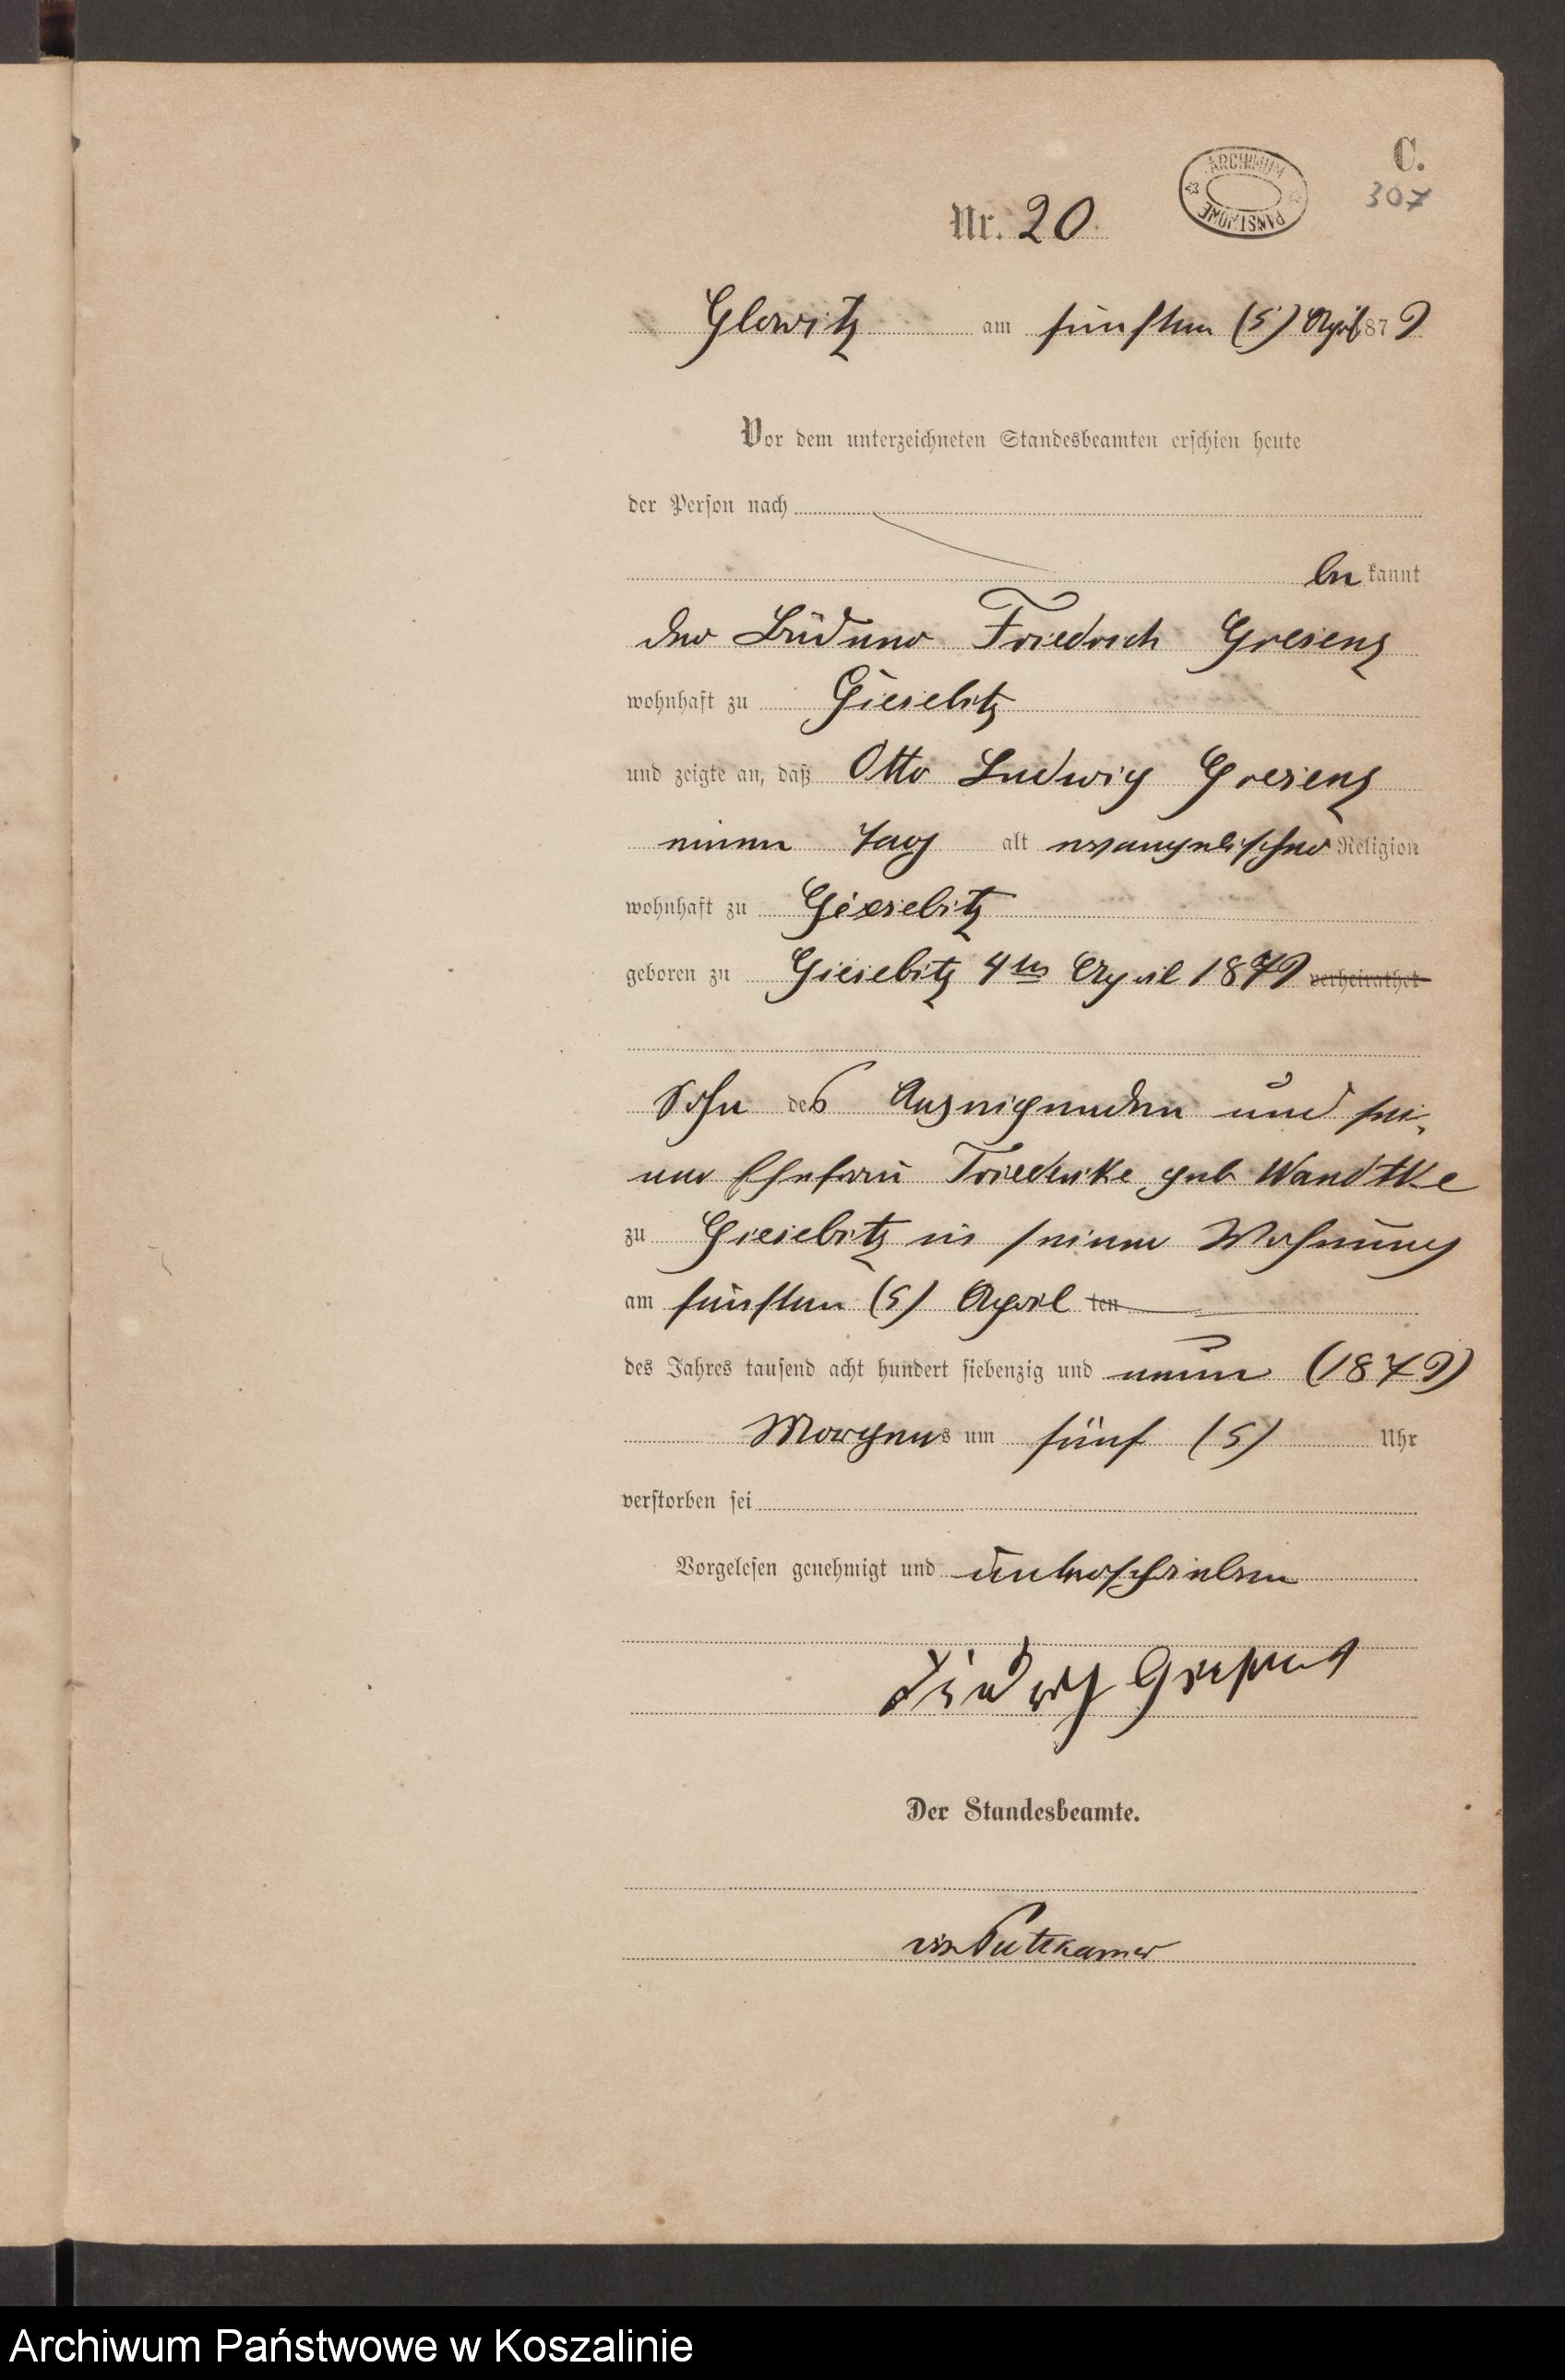 C.
307
ARCHIWUM PAŃSTWOWE
Nr. 20.
Glowitz am fünften (5) April 1879
Vor dem unterzeichneten Standesbeamten erschien heute
der Person nach
be kannt
der Büdner Friedrich Gresens
wohnhaft zu Giesebitz
und zeigte an, daß Otto Ludwig Gresens
einen Tag alt evangelischer Religion
wohnhaft zu Giesebitz
geboren zu Giesebitz 4ten April 1879 verheirathet
Sohn des Anzeigenden und sei-
ner Ehefrau Friederike geb. Wandtke
zu Giesebitz in seiner Wohnung
am fünften (5) April ten
des Jahres tausend acht hundert siebenzig und neun (1879)
Morgens um fünf (5) Uhr
verstorben sei
Vorgelesen genehmigt und unterschrieben
Gresens
Der Standesbeamte.
von Puttkamer
Archiwum Państwowe w Koszalinie